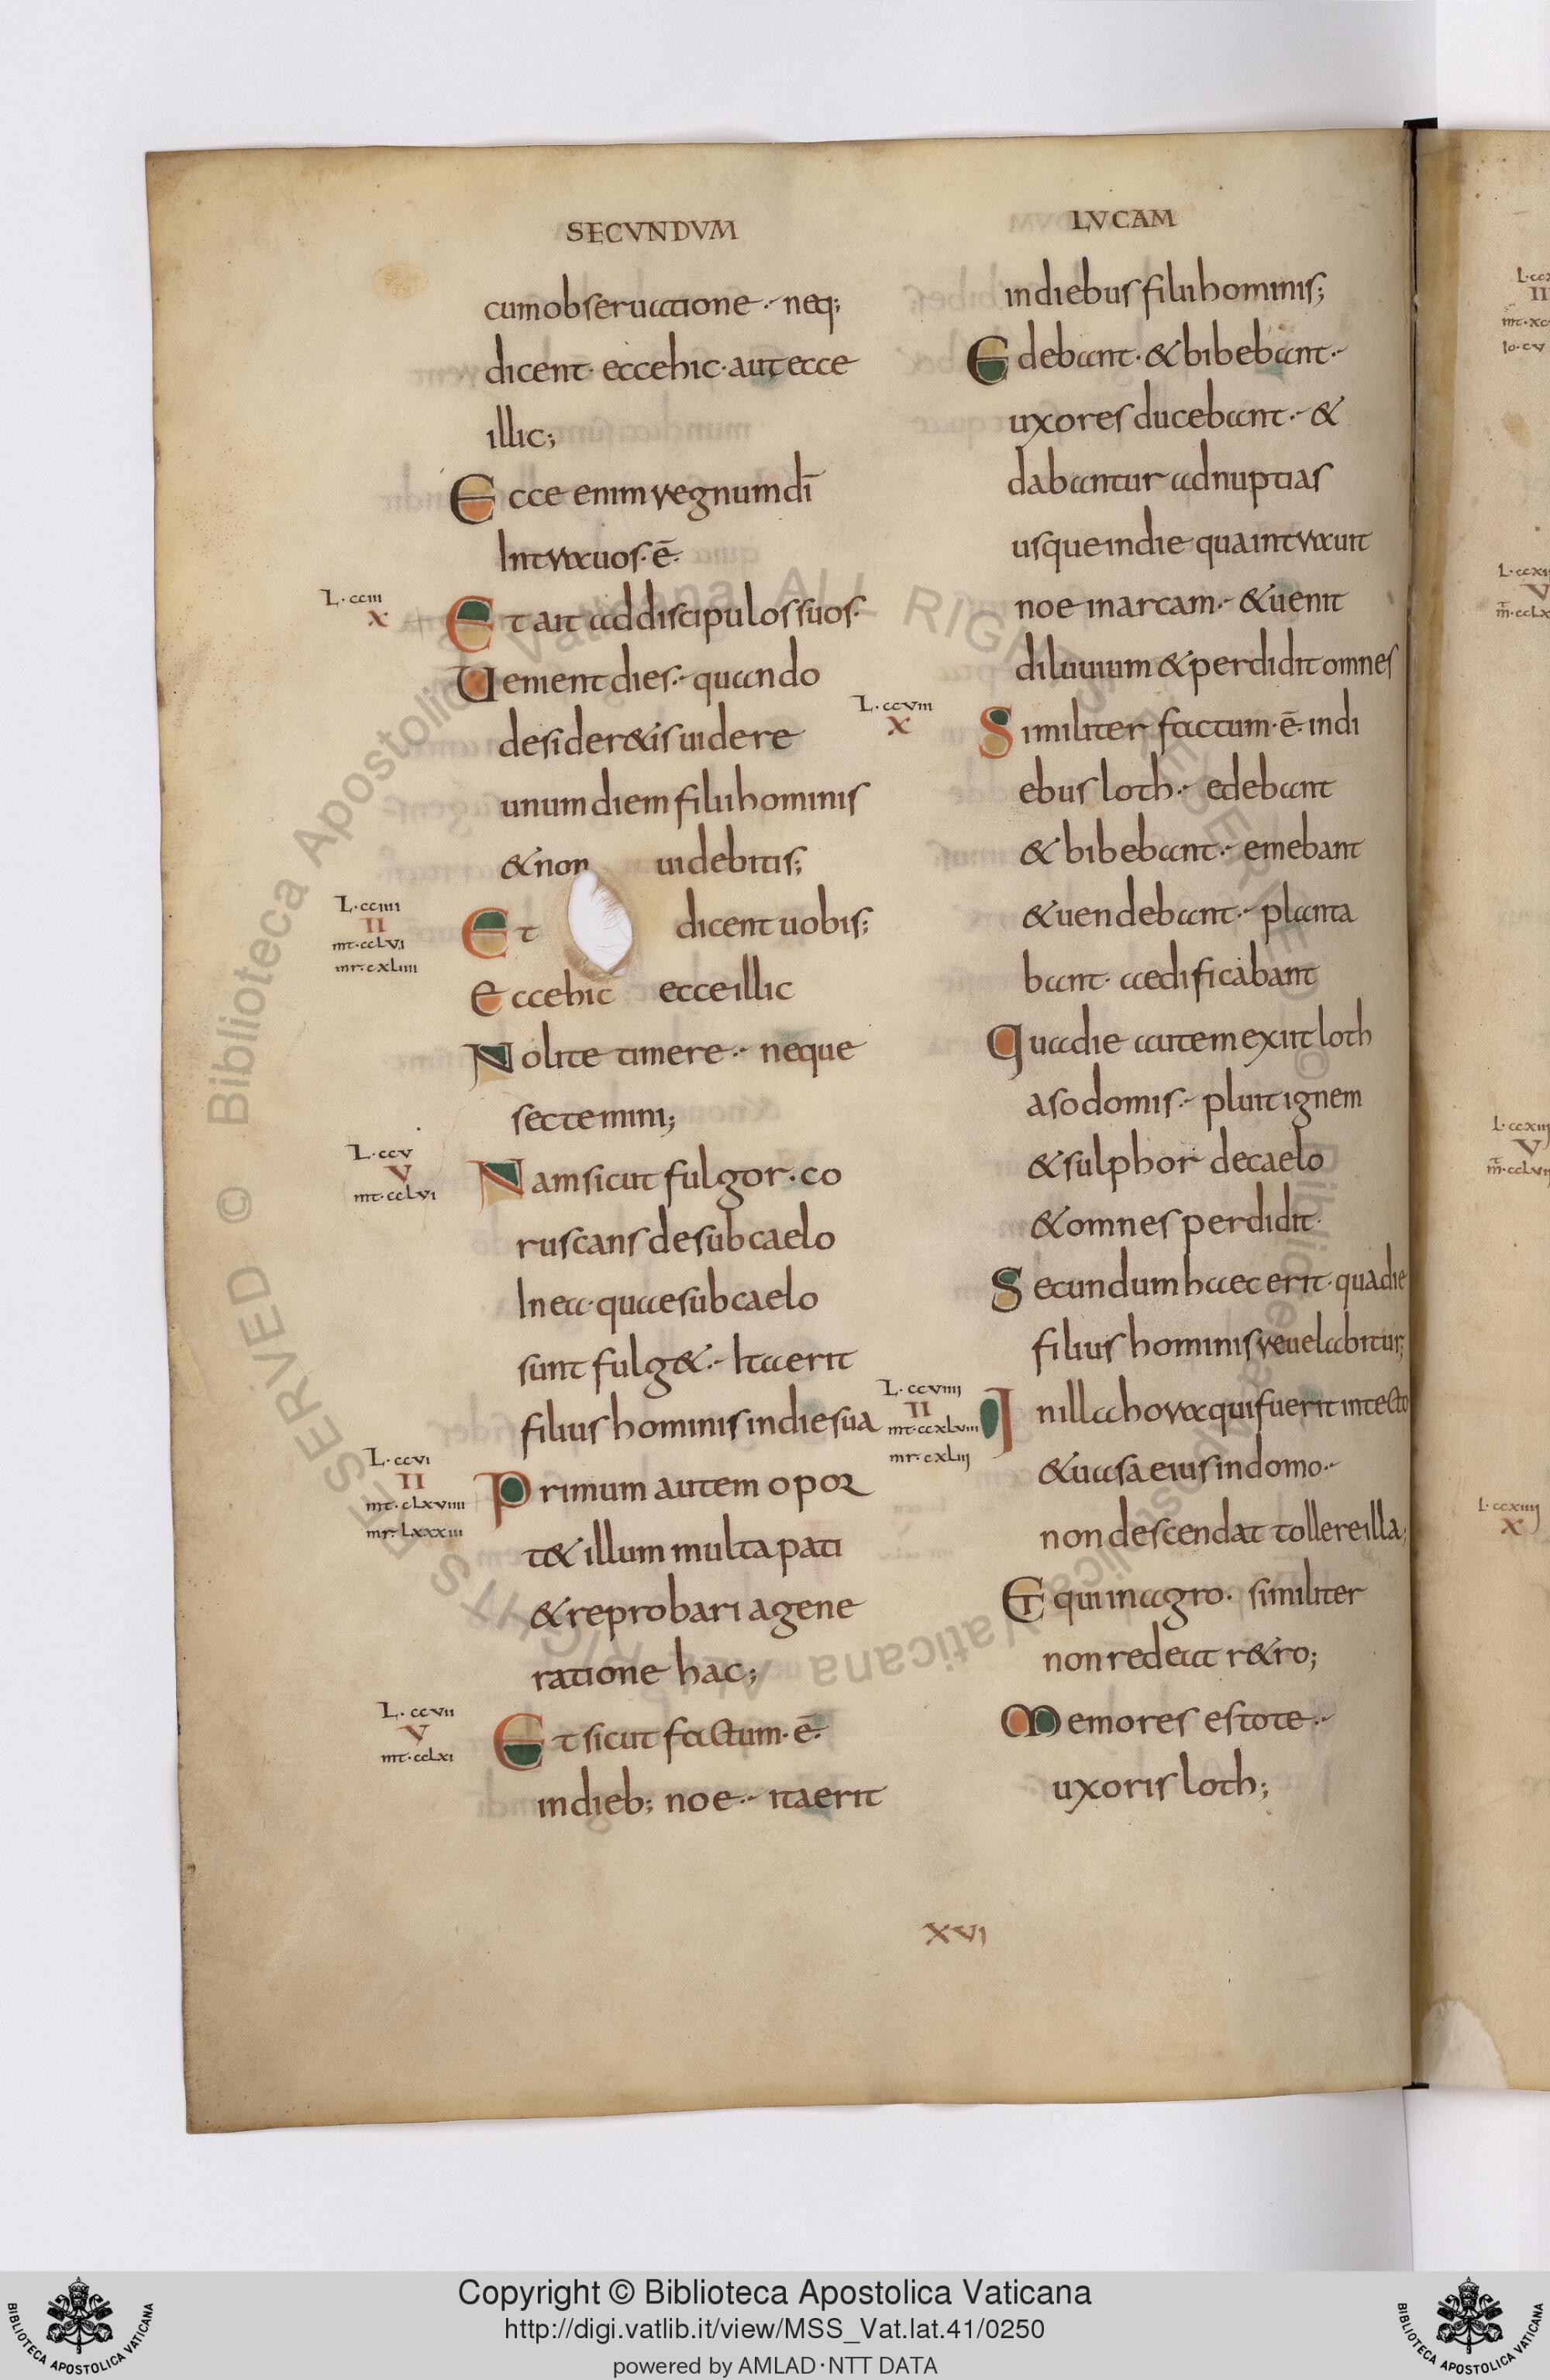 SECVNDVM
cumobseruatione·- neq;
dicent· eccehic·autecce
illic;
Ecce enimregnumdī
Intrauos·ē·
L·cciii
X
Et ait addiscipulossuos·
Uenientdies·- quando
desider&isuidere
unumdiemfiliihominis
&non uidebitis;
L·cciiii
II
mt·ccLvi
mr·cxLiiii
Et dicentuobis;
Eccehic ecceillic
Nolite timere·- neque
sectemini;
L·ccv
V
mt·ccLvi
Namsicut fulgor·co
ruscansdesubcaelo
Inea·quaesubcaelo
sunt fulg&·- Itaerit
filiushominisindiesua
L·ccvi
II
mt·cLxviiii
mr·Lxxxiii
Primum autem opor
t& illum multa pati
&reprobari agene
ratione hac;
L·ccvii
V
mt·ccLxi
Et sicut factum·ē·
indieb; noe·- itaerit
LVCAM
indiebusfiliihominis;
Edebant·&bibebant·-
uxoresducebant·- &
dabantur adnuptias
usqueindie quaintrauit
noe inarcam·- &uenit
diluuium&perdiditomnes
L·ccviii
X
Similiter factum·ē·indi
ebusloth·- edebant
& bibebant·- emebant
&uendebant·- planta
bant· aedificabant
Quadie autemexiitloth
asodomis·- pluitignem
&sulphor decaelo
&omnesperdidit·
Secundumhaecerit·quadie
filiushominisreuelabitur;
L·ccviiii
II
mt·ccxLviii
mr·cxLiij
Inillahoraquifueritintecto
&uasaeiusindomo·-
nondescendat tollereilla;
Et quiinagro· similiter
nonredeat r&ro;
Memores estote·-
uxorisloth;
XVI
Copyright © Biblioteca Apostolica Vaticana
http://digi.vatlib.it/view/MSS_Vat.lat.41/0250
powered by AMLAD·NTT DATA
BIBLIOTECA APOSTOLICA VATICANA
BIBLIOTECA APOSTOLICA VATICANA